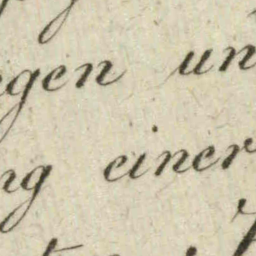 egen un
ng einer